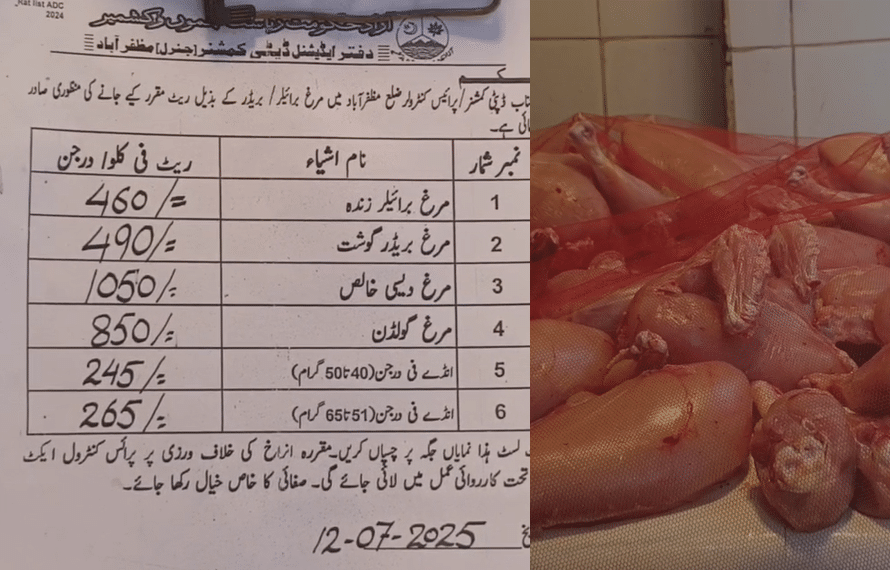 Rat list ADC
2024
آزاد حکومت ریاست جموں و کشمیر
دفتر ایڈیشنل ڈپٹی کمشنر [جنرل] مظفر آباد
حکم
ڈپٹی کمشنر/پرائس کنٹرولر ضلع مظفرآباد میں مرغ برائیلر/ بریڈر کے بذیل ریٹ مقرر کیے جانے کی منظوری صادر
ہے۔
نمبر شمار نام اشیاء ریٹ فی کلو/ درجن
1 مرغ برائیلر زندہ 460/=
2 مرغ بریڈر گوشت 490/=
3 مرغ دیسی خالص 1050/=
4 مرغ گولڈن 850/=
5 انڈے فی درجن(40 تا 50 گرام) 245/=
6 انڈے فی درجن(51 تا 65 گرام) 265/=
لسٹ ہذا نمایاں جگہ پر چسپاں کریں۔مقررہ انراخ کی خلاف ورزی پر پرائس کنٹرول ایکٹ
تحت کارروائی عمل میں لائی جائے گی۔ صفائی کا خاص خیال رکھا جائے۔
12-07-2025